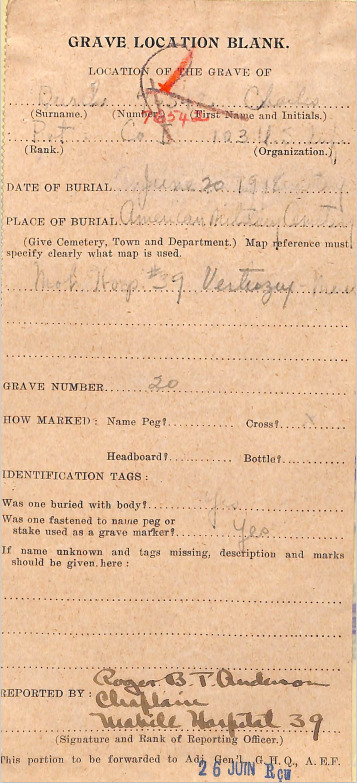 GRAVE LOCATION BLANK.
LOCATION OF THE GRAVE OF
Charles
(Surname.) (Number.) (First Name and Initials.)
Pvt. Co 103
(Rank.) (Organization.)
DATE OF BURIAL June 20 1918
PLACE OF BURIAL American Military Cemetery
(Give Cemetery, Town and Department.) Map reference must
specify clearly what map is used.
Mob. Hosp #39
GRAVE NUMBER 20
HOW MARKED : Name Peg? Cross? X
Headboard? Bottle?
IDENTIFICATION TAGS :
Was one buried with body? Yes
Was one fastened to name peg or
stake used as a grave marker? Yes
If name unknown and tags missing, description and marks
should be given here :
REPORTED BY : Roger B. T. Anderson
Chaplain
Mobile Hospital 39
(Signature and Rank of Reporting Officer.)
This portion to be forwarded to Adj. Gen'l, G.H.Q., A.E.F.
26 JUIN